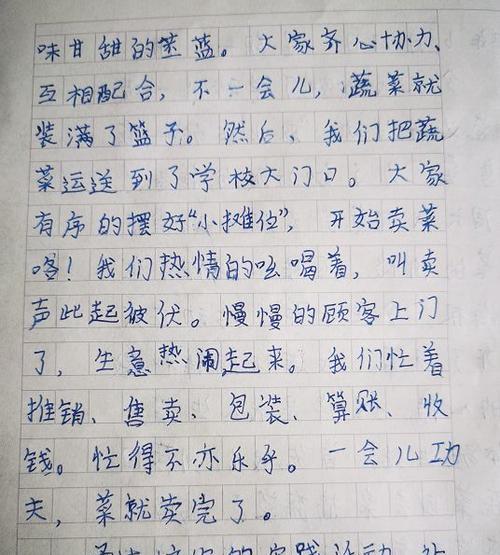 味甘甜的苤蓝。大家齐心协力、
互相配合，不一会儿，蔬菜就
装满了篮子。然后，我们把蔬
菜运送到了学校大门口。大家
有序的摆好“小摊位”，开始卖菜
咯！我们热情的吆喝着，叫卖
声此起彼伏。慢慢的顾客上门
了，生意热闹起来。我们忙着
推销、售卖、包装、算账、收
钱。忙得不亦乐乎。一会儿功
夫，菜就卖完了。
的实践活动